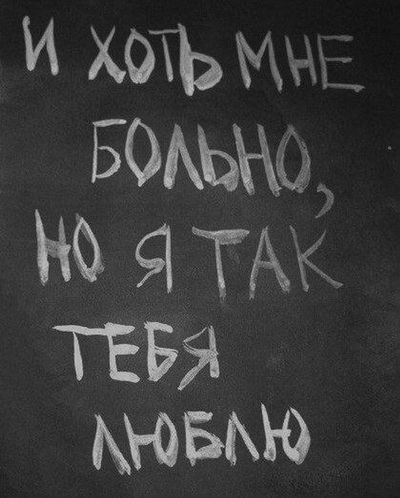 И ХОТЬ МНЕ
БОЛЬНО,
НО Я ТАК
ТЕБЯ
ЛЮБЛЮ